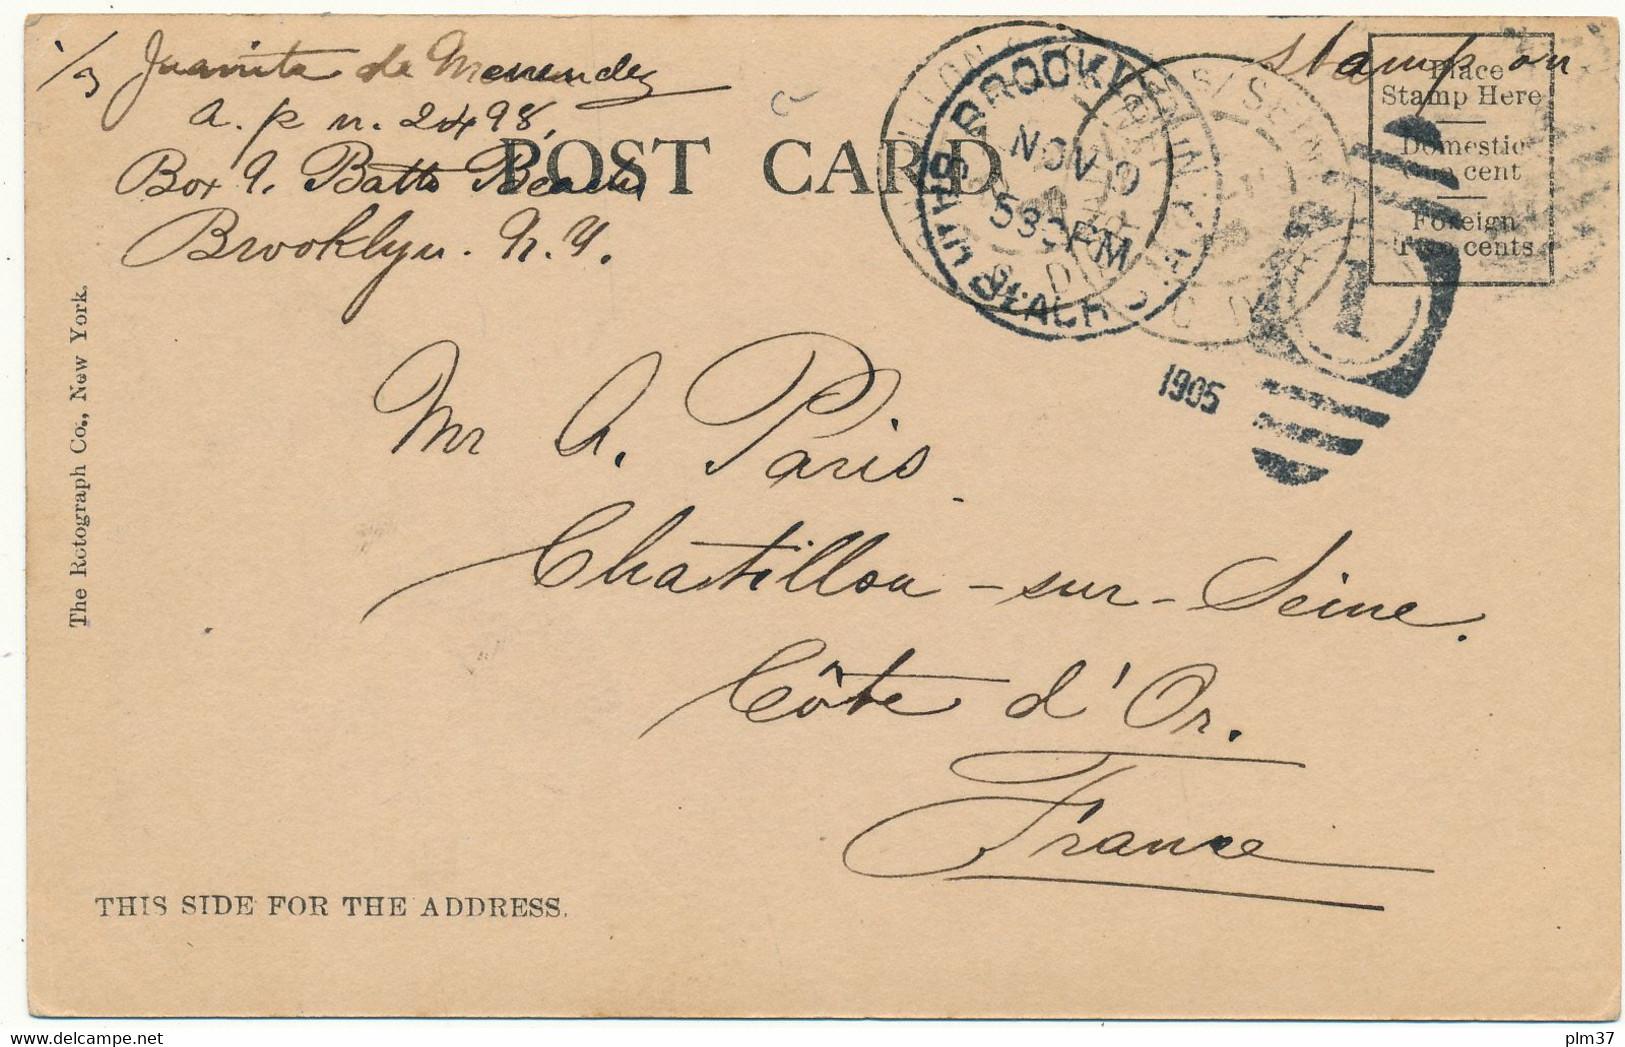 Juanita de Menendez
A. P. N. 2498,
Box 9. Bath Beach
Brooklyn. N. Y.
stamp on
POST CARD
Place
Stamp Here
Domestic
One cent
Foreign
Two cents
BROOKLYN, N.Y.
BATH BEACH STA.
NOV
530PM
1905
1
Mr A. Paris
Chatillon-sur-Seine.
Côte d'Or.
France
The Rotograph Co., New York.
THIS SIDE FOR THE ADDRESS.
plm37